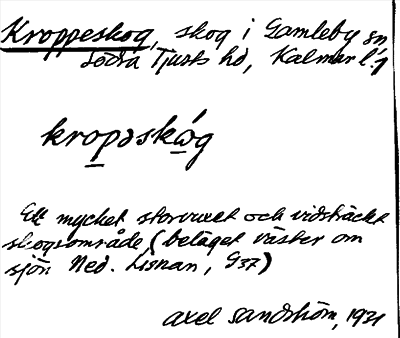 Kroppeskog, skog i Gamleby sn
Södra Tjusts hd, Kalmar l.
kropəskóg
Ett mycket storvuxet och vidsträckt
skogsområde (beläget väster om
sjön Ned. Lisnan, G37)
Axel Sandström, 1931